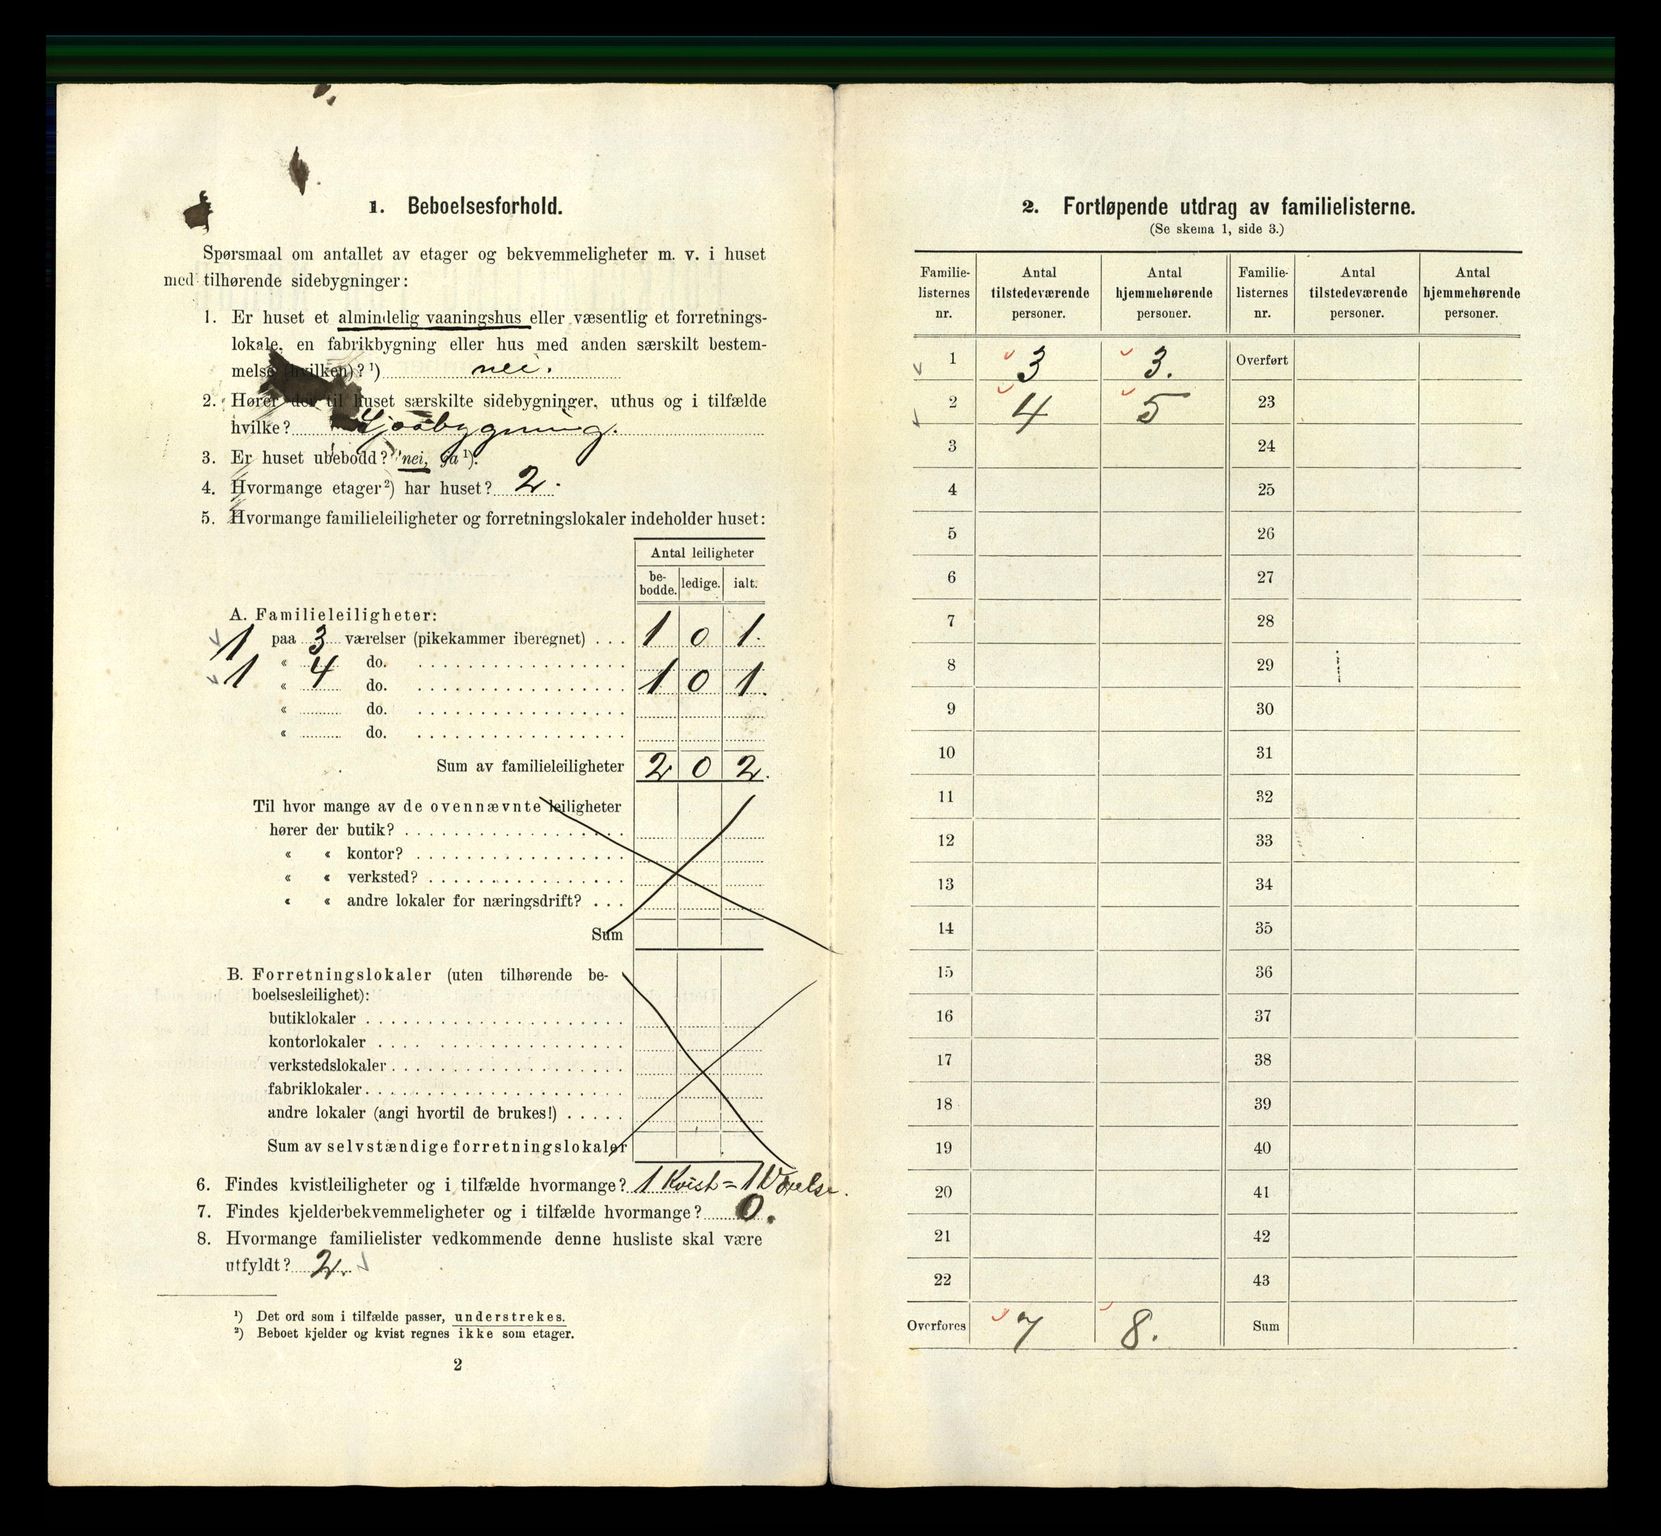 1. Beboelsesforhold.
Spørsmaal om antallet av etager og bekvemmeligheter m. v. i huset
med tilhørende sidebygninger:
1. Er huset et almindelig vaaningshus eller væsentlig et forretnings-
lokale, en fabrikbygning eller hus med anden særskilt bestem-
melse (hvilken)? ¹) nei.
2. Hører der til huset særskilte sidebygninger, uthus og i tilfælde
hvilke?
3. Er huset ubebodd? nei, ja ¹).
4. Hvormange etager ²) har huset? 2.
5. Hvormange familieleiligheter og forretningslokaler indeholder huset:
Antal leiligheter
be-
bodde. ledige. ialt.
A. Familieleiligheter:
1 paa 3 værelser (pikekammer iberegnet) . . . 1 0 1.
1 « 4 do.
« do. 1 0 1.
« do.
« do.
Sum av familieleiligheter 2 0 2.
Til hvor mange av de ovennævnte leiligheter
hører der butik?
« « kontor?
« « verksted?
« « andre lokaler for næringsdrift? . . .
Sum
B. Forretningslokaler (uten tilhørende be-
boelsesleilighet):
butiklokaler
kontorlokaler
verkstedslokaler
fabriklokaler
andre lokaler (angi hvortil de brukes!)
Sum av selvstændige forretningslokaler
6. Findes kvistleiligheter og i tilfælde hvormange? 1 Kvist = 1 Værelse.
7. Findes kjelderbekvemmeligheter og i tilfælde hvormange? 0.
8. Hvormange familielister vedkommende denne husliste skal være
utfyldt? 2.
¹) Det ord som i tilfælde passer, understrekes.
²) Beboet kjelder og kvist regnes ikke som etager.
2
2. Fortløpende utdrag av familielisterne.
(Se skema 1, side 3.)
Familie- Antal Antal Familie- Antal Antal
listernes tilstedeværende hjemmehørende listernes tilstedeværende hjemmehørende
nr. personer. personer. nr. personer. personer.
1 3 3. Overført
2 4 5 23
3 24
4 25
5 26
6 27
7 28
8 29
9 30
10 31
11 32
12 33
13 34
14 35
15 36
16 37
17 38
18 39
19 40
20 41
21 42
22 43
Overføres 7 8. Sum